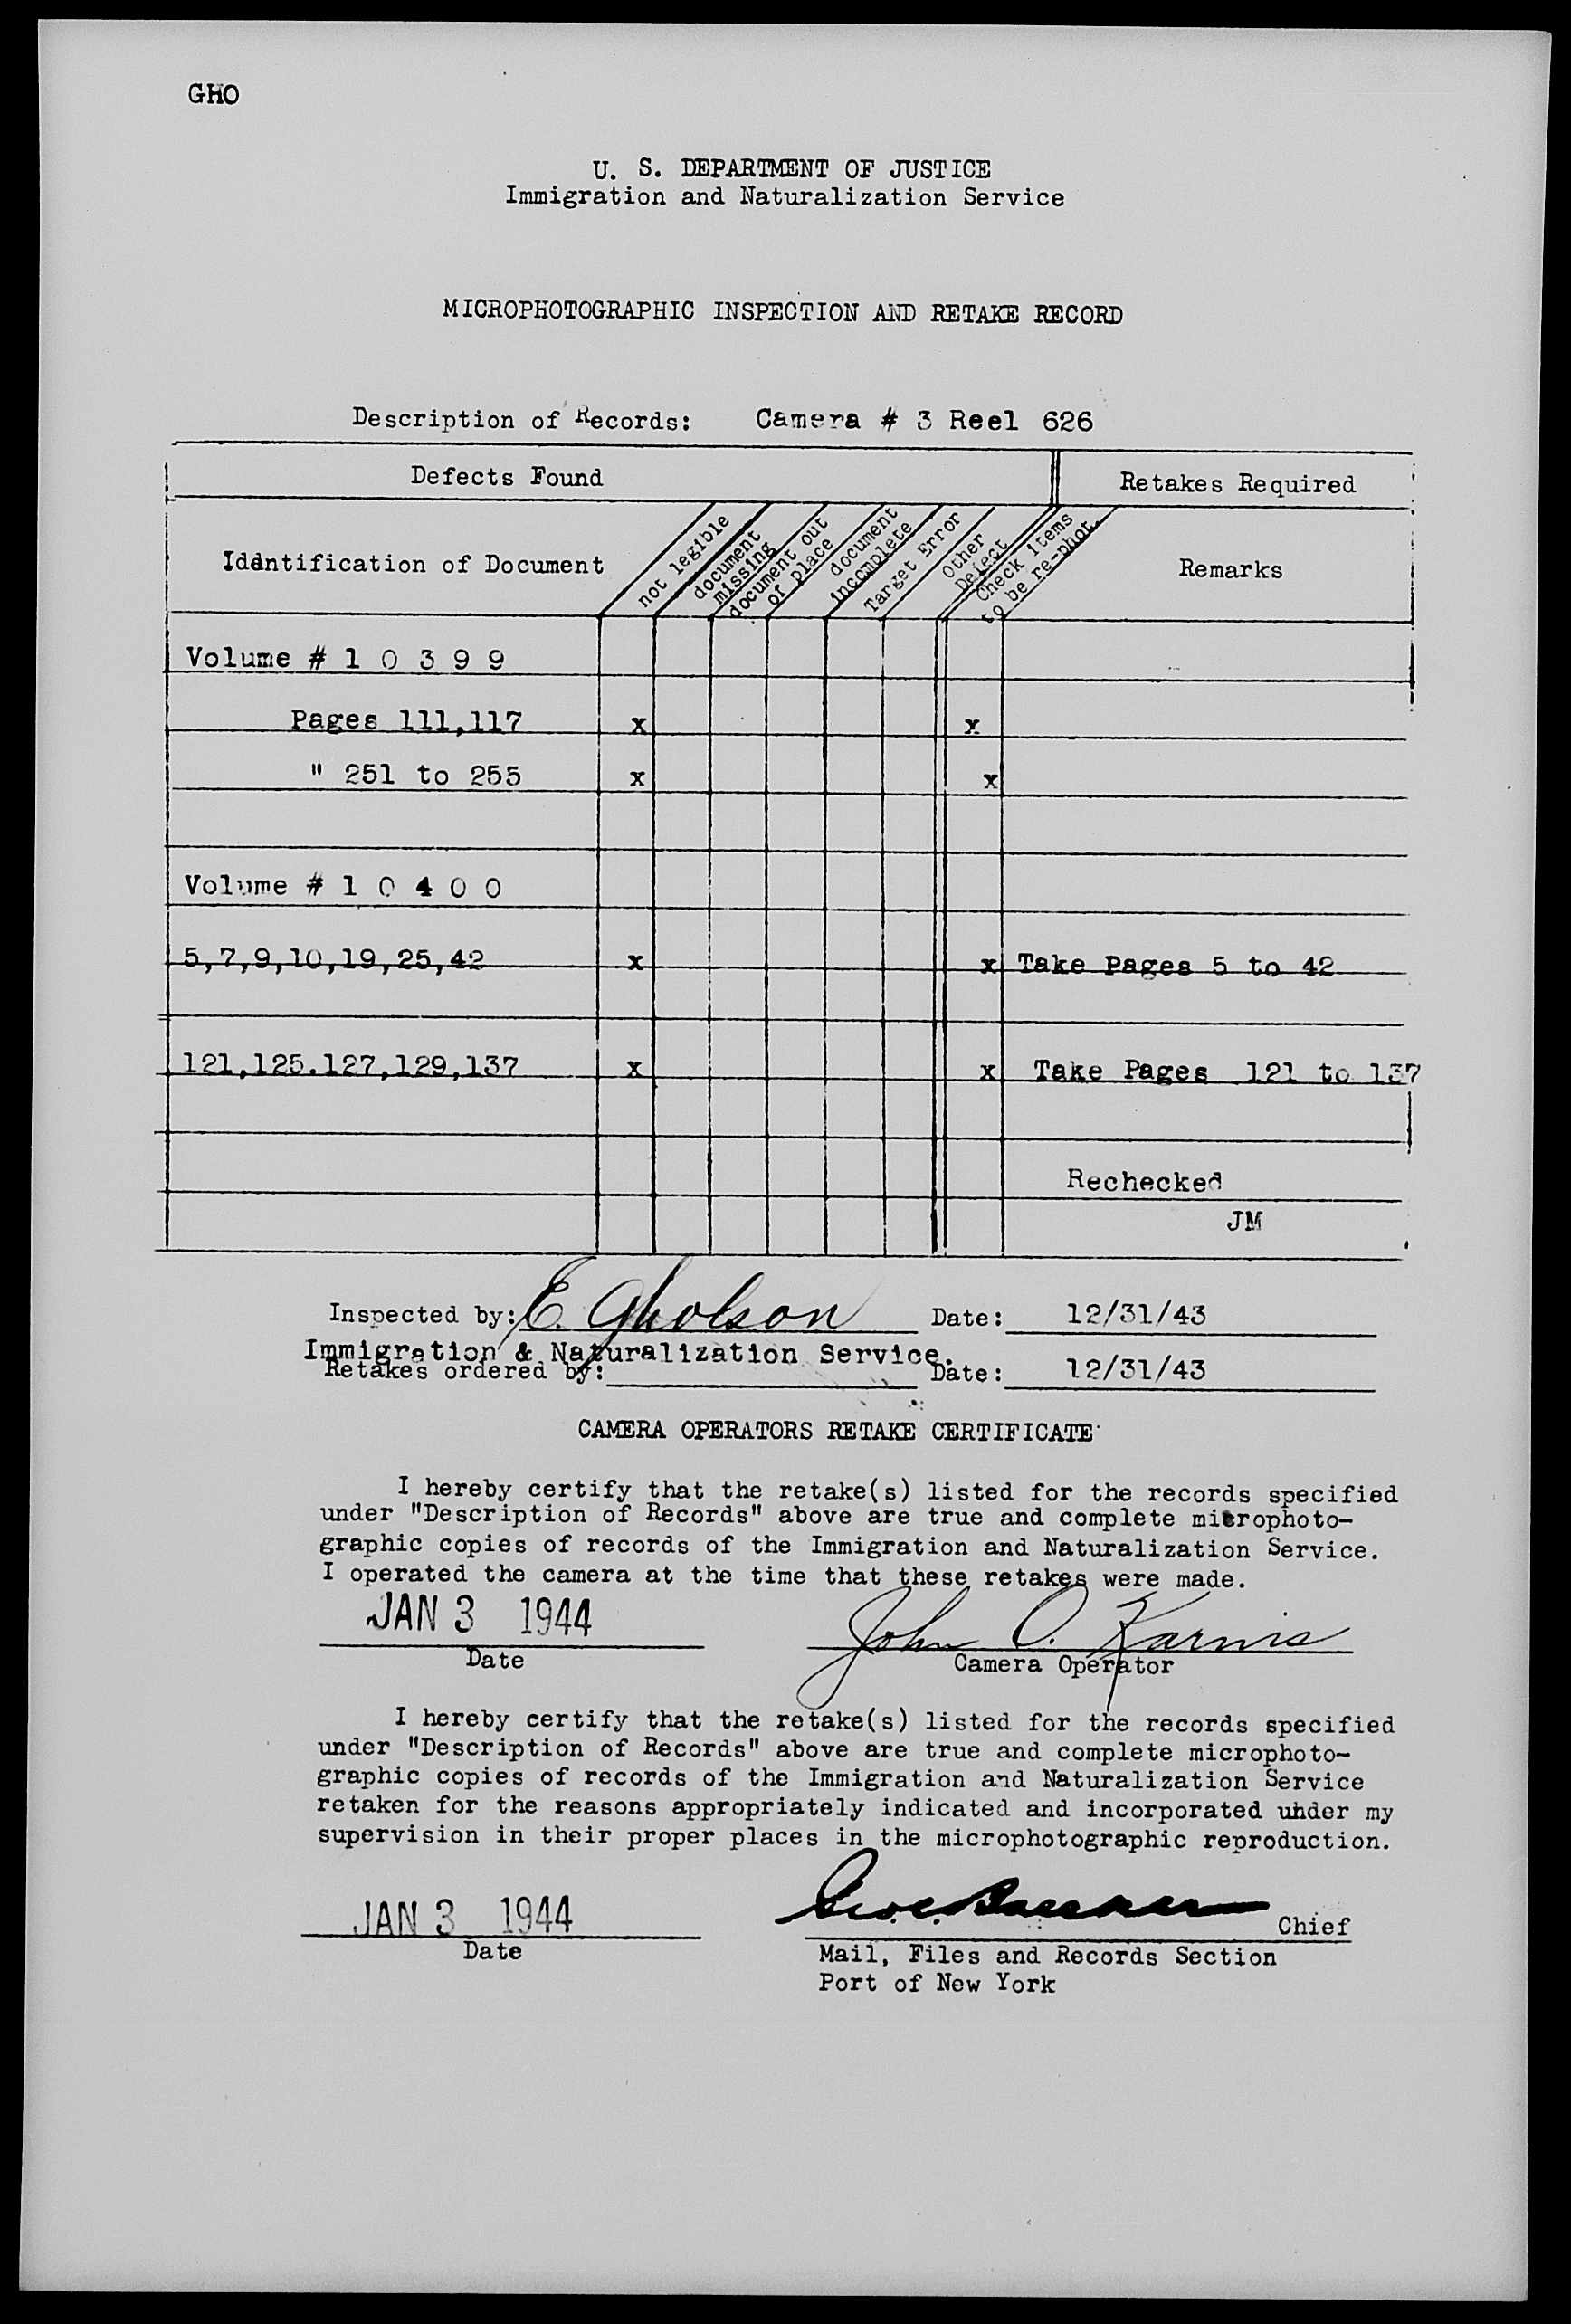 GHO
U. S. DEPARTMENT OF JUSTICE
Immigration and Naturalization Service
MICROPHOTOGRAPHIC INSPECTION AND RETAKE RECORD
Description of Records: Camera # 3 Reel 626
Defects Found
Retakes Required
Identification of Document
not legible
document missing
document out of place
document incomplete
Target Error
Other Defect
Check items to be re-phot.
Remarks
Volume # 1 0 3 9 9
Pages 111,117 x x
" 251 to 255 x x
Volume # 1 0 4 0 0
5,7,9,10,19,25,42 x x Take Pages 5 to 42
121,125.127,129,137 x x Take Pages 121 to 137
Rechecked
JM
Inspected by: E. Gholson Date: 12/31/43
Immigration & Naturalization Service.
Retakes ordered by: Date: 12/31/43
CAMERA OPERATORS RETAKE CERTIFICATE
I hereby certify that the retake(s) listed for the records specified
under "Description of Records" above are true and complete microphoto-
graphic copies of records of the Immigration and Naturalization Service.
I operated the camera at the time that these retakes were made.
JAN 3 1944 John O. Karnis
Date Camera Operator
I hereby certify that the retake(s) listed for the records specified
under "Description of Records" above are true and complete microphoto-
graphic copies of records of the Immigration and Naturalization Service
retaken for the reasons appropriately indicated and incorporated under my
supervision in their proper places in the microphotographic reproduction.
JAN 3 1944 Chief
Date Mail, Files and Records Section
Port of New York